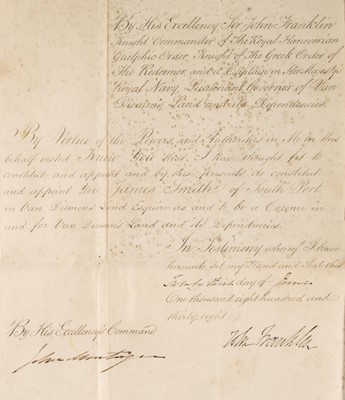 By His Excellency Sir John Franklin
Knight Commander of The Royal Hanoverian
Guelphic Order, Knight of The Greek Order of
The Redeemer and a Captain in Her Majesty's
Royal Navy, Lieutenant Governor of Van
Diemen's Land and its Dependencies.
By Virtue of the Powers and Authorities in Me in this
behalf vested Know You that I have thought fit to
constitute and appoint and by these Presents do constitute
and appoint you James Smith of South Port
in Van Diemens Land Esquire as and to be a Coroner in
and for Van Diemen's Land and its Dependencies.
In Testimony whereof I have
hereunto set my Hand and Seal this
day of
One thousand eight hundred and
thirty eight.
By His Excellency's Command
John Montagu
John Franklin